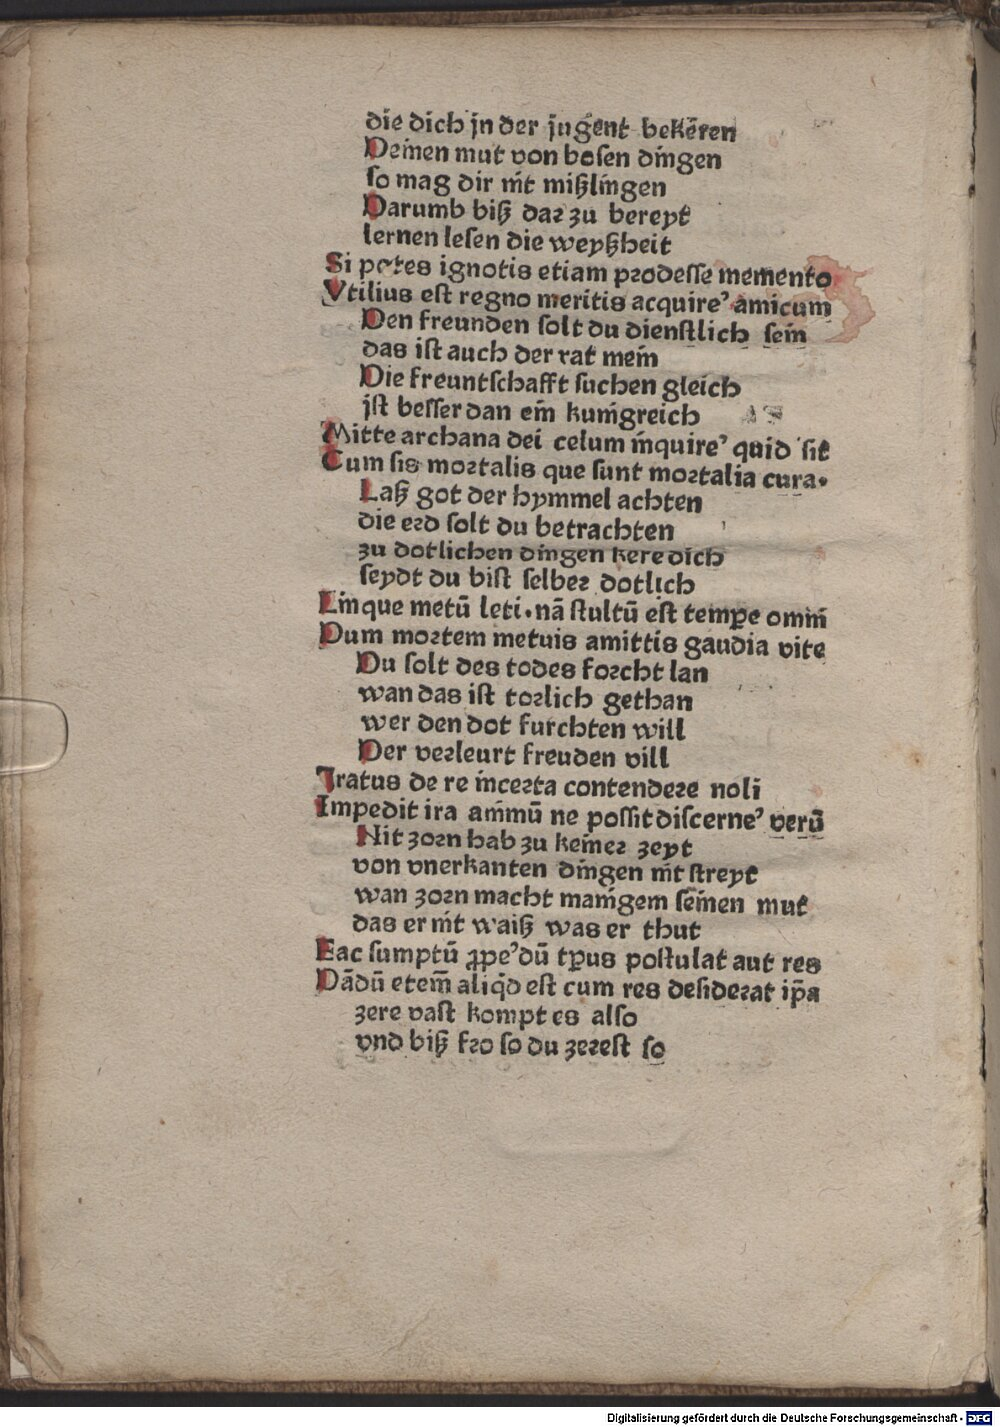 die dich jn der jugent bekeren
Deinen mut von bosen dingen
so mag dir nit mißlingen
Darumb biß dar zu bereyt
lernen lesen die weyßheit
Si potes ignotis etiam prodesse memento
Vtilius est regno meritis acquire' amicum
Den freunden solt du dienstlich sein
das ist auch der rat mein
Die freuntschafft suchen gleich
jst besser dan ein kunigreich
Mitte archana dei celum inquire' quid sit
Cum sis mortalis que sunt mortalia cura.
Laß got der hymmel achten
die erd solt du betrachten
zu dotlichen dingen kere dich
seydt du bist selber dotlich
Linque metū leti.nā stultū est tempꝑe omni
Dum mortem metuis amittis gaudia vite
Du solt des todes forcht lan
wan das ist torlich gethan
wer den dot furchten will
Der verleurt freuden vill
Jratus de re incerta contendere noli
Impedit ira animū ne possit discerne' verū
Nit zorn hab zu keiner zeyt
von vnerkanten dingen nit streyt
wan zorn macht manigem seinen mut
das er nit waiß was er thut
Fac sumptū ꝓpe'dū tꝑus postulat aut res
Dādū etem̄ aliqd̄ est cum res desiderat ip̄a
zere vast kompt es also
vnd biß fro so du zerest so
Digitalisierung gefördert durch die Deutsche Forschungsgemeinschaft - DFG